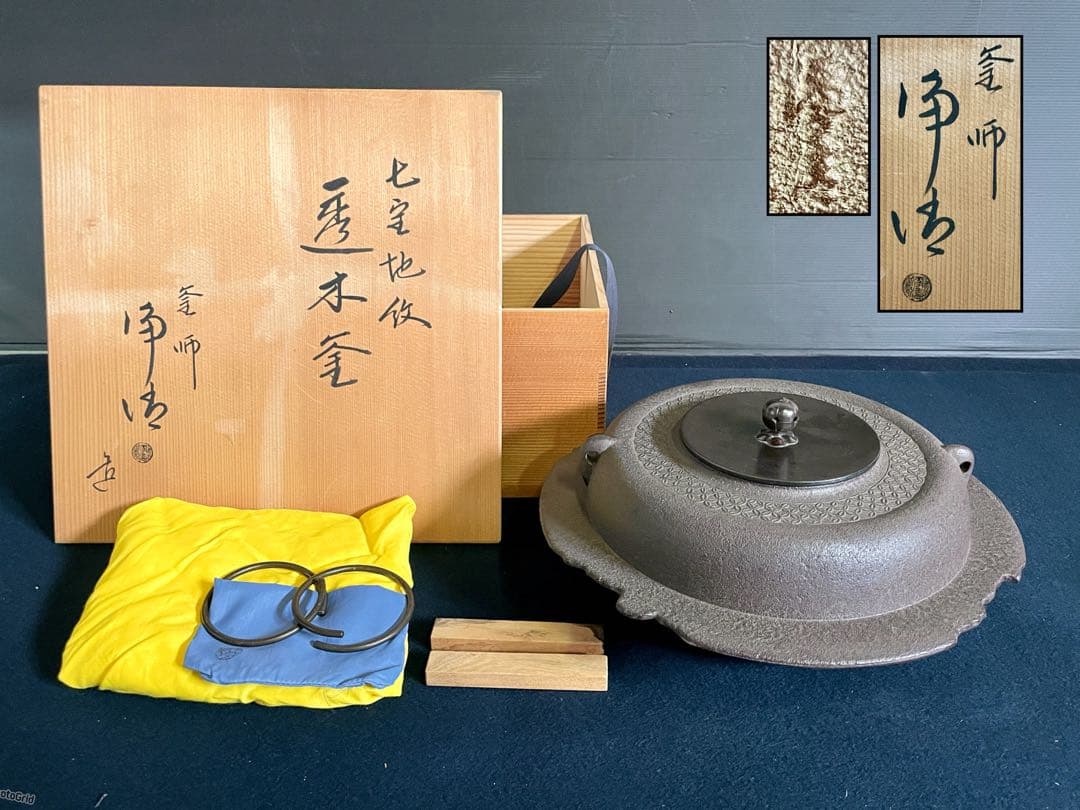 七宝地紋
透木釜
釜師
浄清
造
釜師
浄清
otoGrid